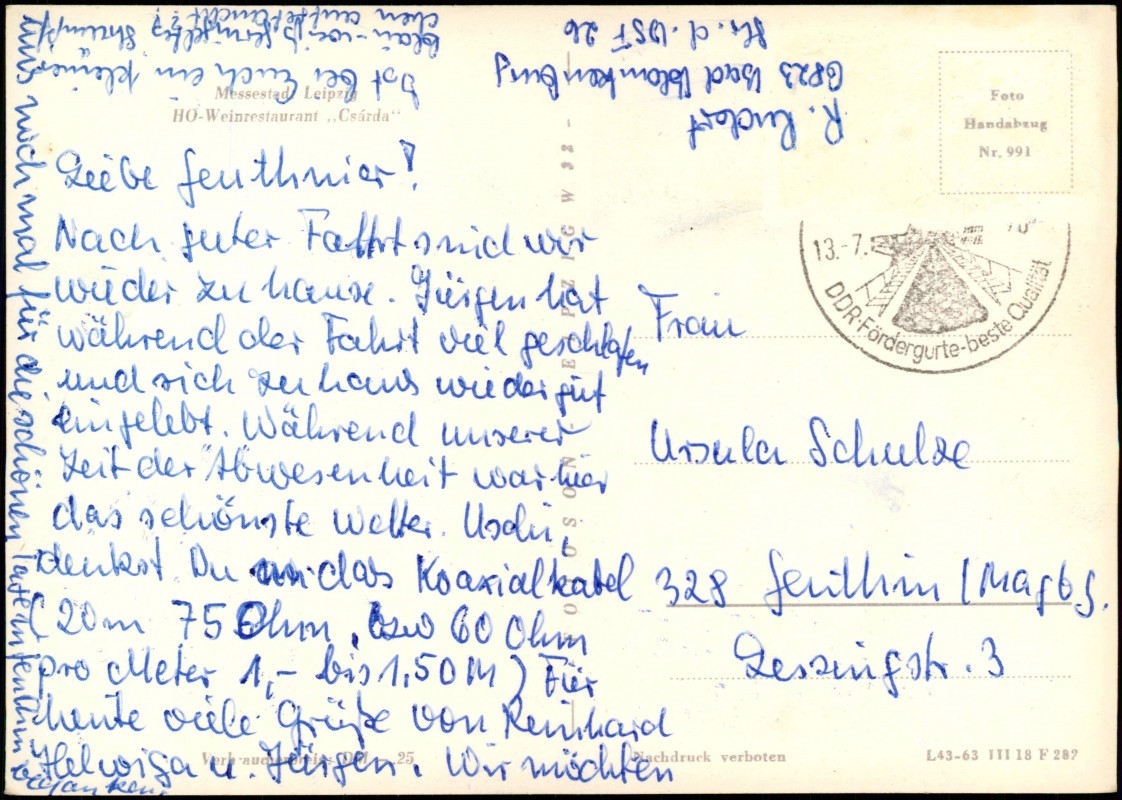 Messestadt Leipzig
HO-Weinrestaurant „Csárda“
Liebe Genthiner!
Nach guter Fahrt sind wir
wieder zu hause. Jürgen hat
während der Fahrt viel geschlafen
und sich zu haus wieder gut
eingelebt. Während unserer
Zeit der Abwesenheit war hier
das schönste Wetter. Uschi,
denkst Du an das Koaxialkabel
(20m 75 Ohm, bzw 60 Ohm
pro Meter 1,- bis 1,50 M) Für
heute viele Grüße von Reinhard
Helwiga u. Jürgen. Wir möchten
uns noch mal für die schönen Tage in Genthin
bedanken.
Ist bei Euch ein kleiner
blau-weiß Strumpf
chen aufgetaucht??
R.
6823 Bad Blankenburg
Str. d. DSF 26
Foto
Handabzug
Nr. 991
13.-7.
DDR-Fördergurte-beste Qualität
Frau
Ursula Schulze
328 Genthin / Magdbg.
Lessingstr. 3
Nachdruck verboten
L43-63 III 18 F 287